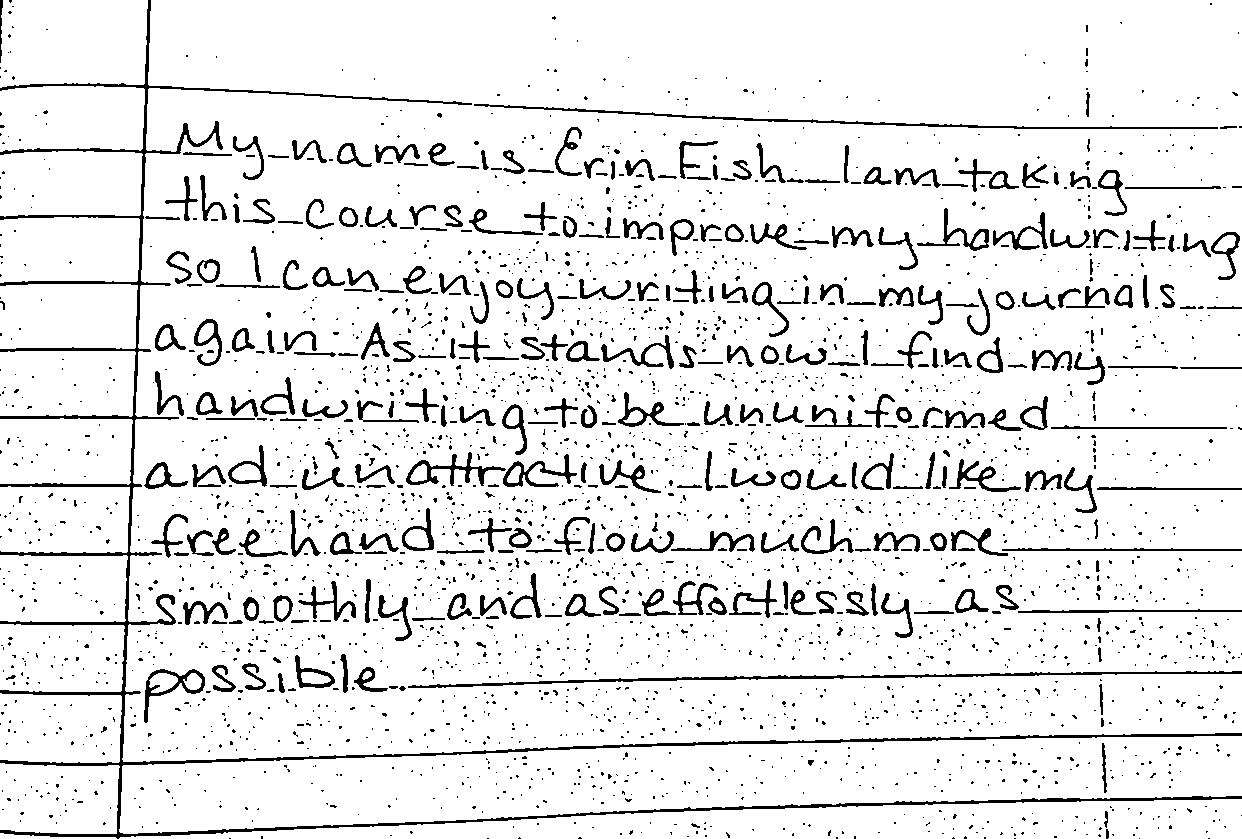 My name is Erin Fish I am taking
this course to improve my handwriting
so I can enjoy writing in my journals
again. As it stands now I find my
handwriting to be ununiformed
and unattractive. I would like my
freehand to flow much more
smoothly and as effortlessly as
possible.